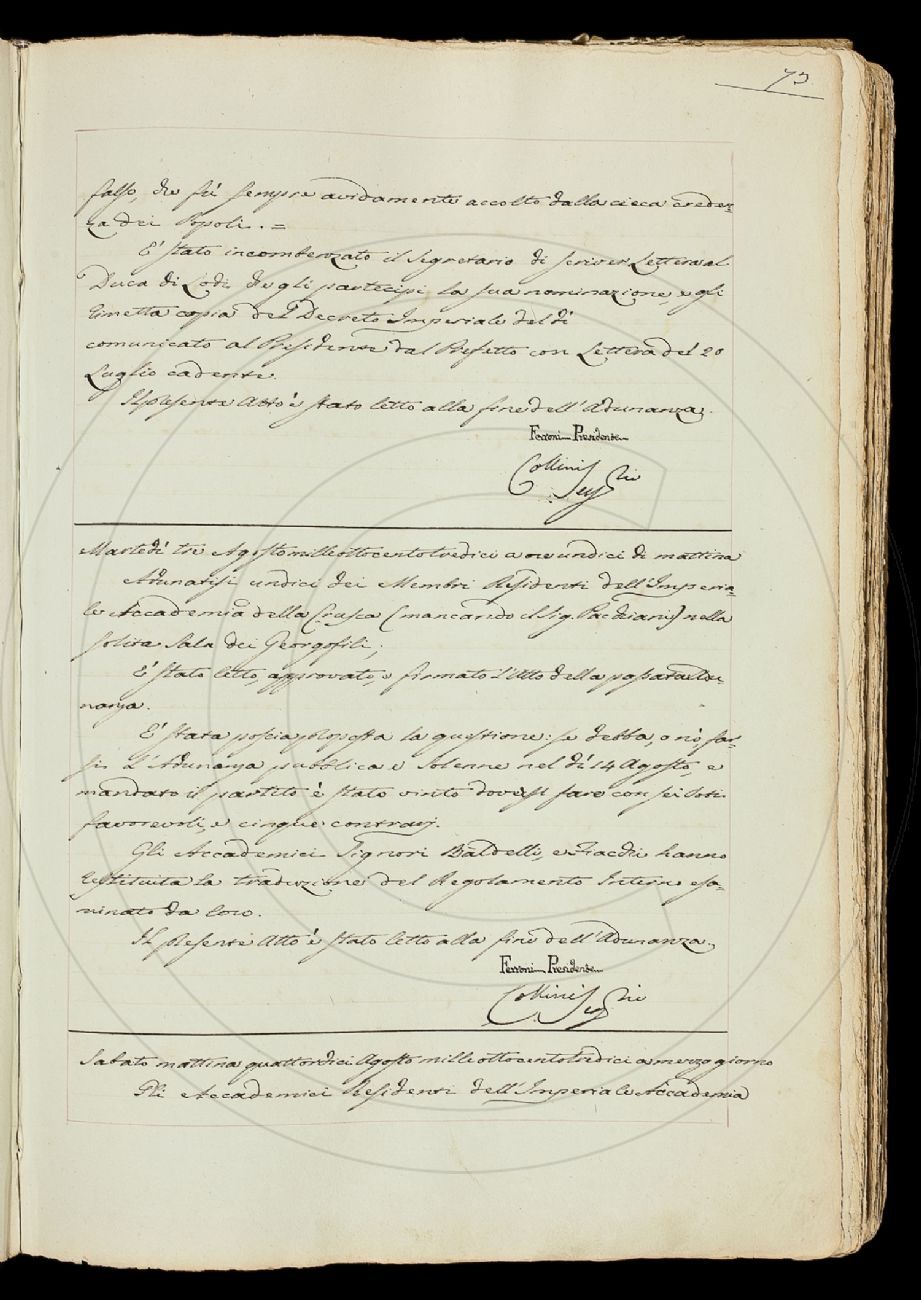 73
falso, che fù sempre avidamente accolto dalla cieca creden=
za dei Popoli. =
E' stato incombenzato il Segretario di scriver Lettera al
Duca di Lodi che gli partecipi la sua nominazione, e gli
rimetta copia del Decreto Imperiale del dì
comunicato al Presidente dal Prefetto con Lettera de' 20
Luglio cadente.
Il presente Atto è stato letto alla fine dell'Adunanza.
Ferroni Presidente
Collini Seg.rio
Martedì tre Agosto milleottocentotredici a ore undici di mattina
Adunatisi undici dei Membri Residenti dell'Imperia=
le Accademia della Crusca (mancando il Sig. Pacchiani) nella
solita Sala dei Georgofili,
E' stato letto, approvato, e firmato l'Atto della passata Adu=
nanza.
E' stata poscia proposta la questione: se debba, o nò, far=
si l'Adunanza pubblica e solenne nel dì 14 Agosto, e
mandato il partito è stato vinto doversi fare con sei voti
favorevoli, e cinque contrarj.
Gli Accademici Signori Baldelli, e Fiacchi hanno
restituita la traduzione del Regolamento Interno esa=
minato da loro.
Il presente Atto è stato letto alla fine dell'Adunanza.
Ferroni Presidente
Collini Seg.rio
Sabato mattina quattordici Agosto milleottocentotredici a mezzo giorno
Gli Accademici Residenti dell'Imperiale Accademia